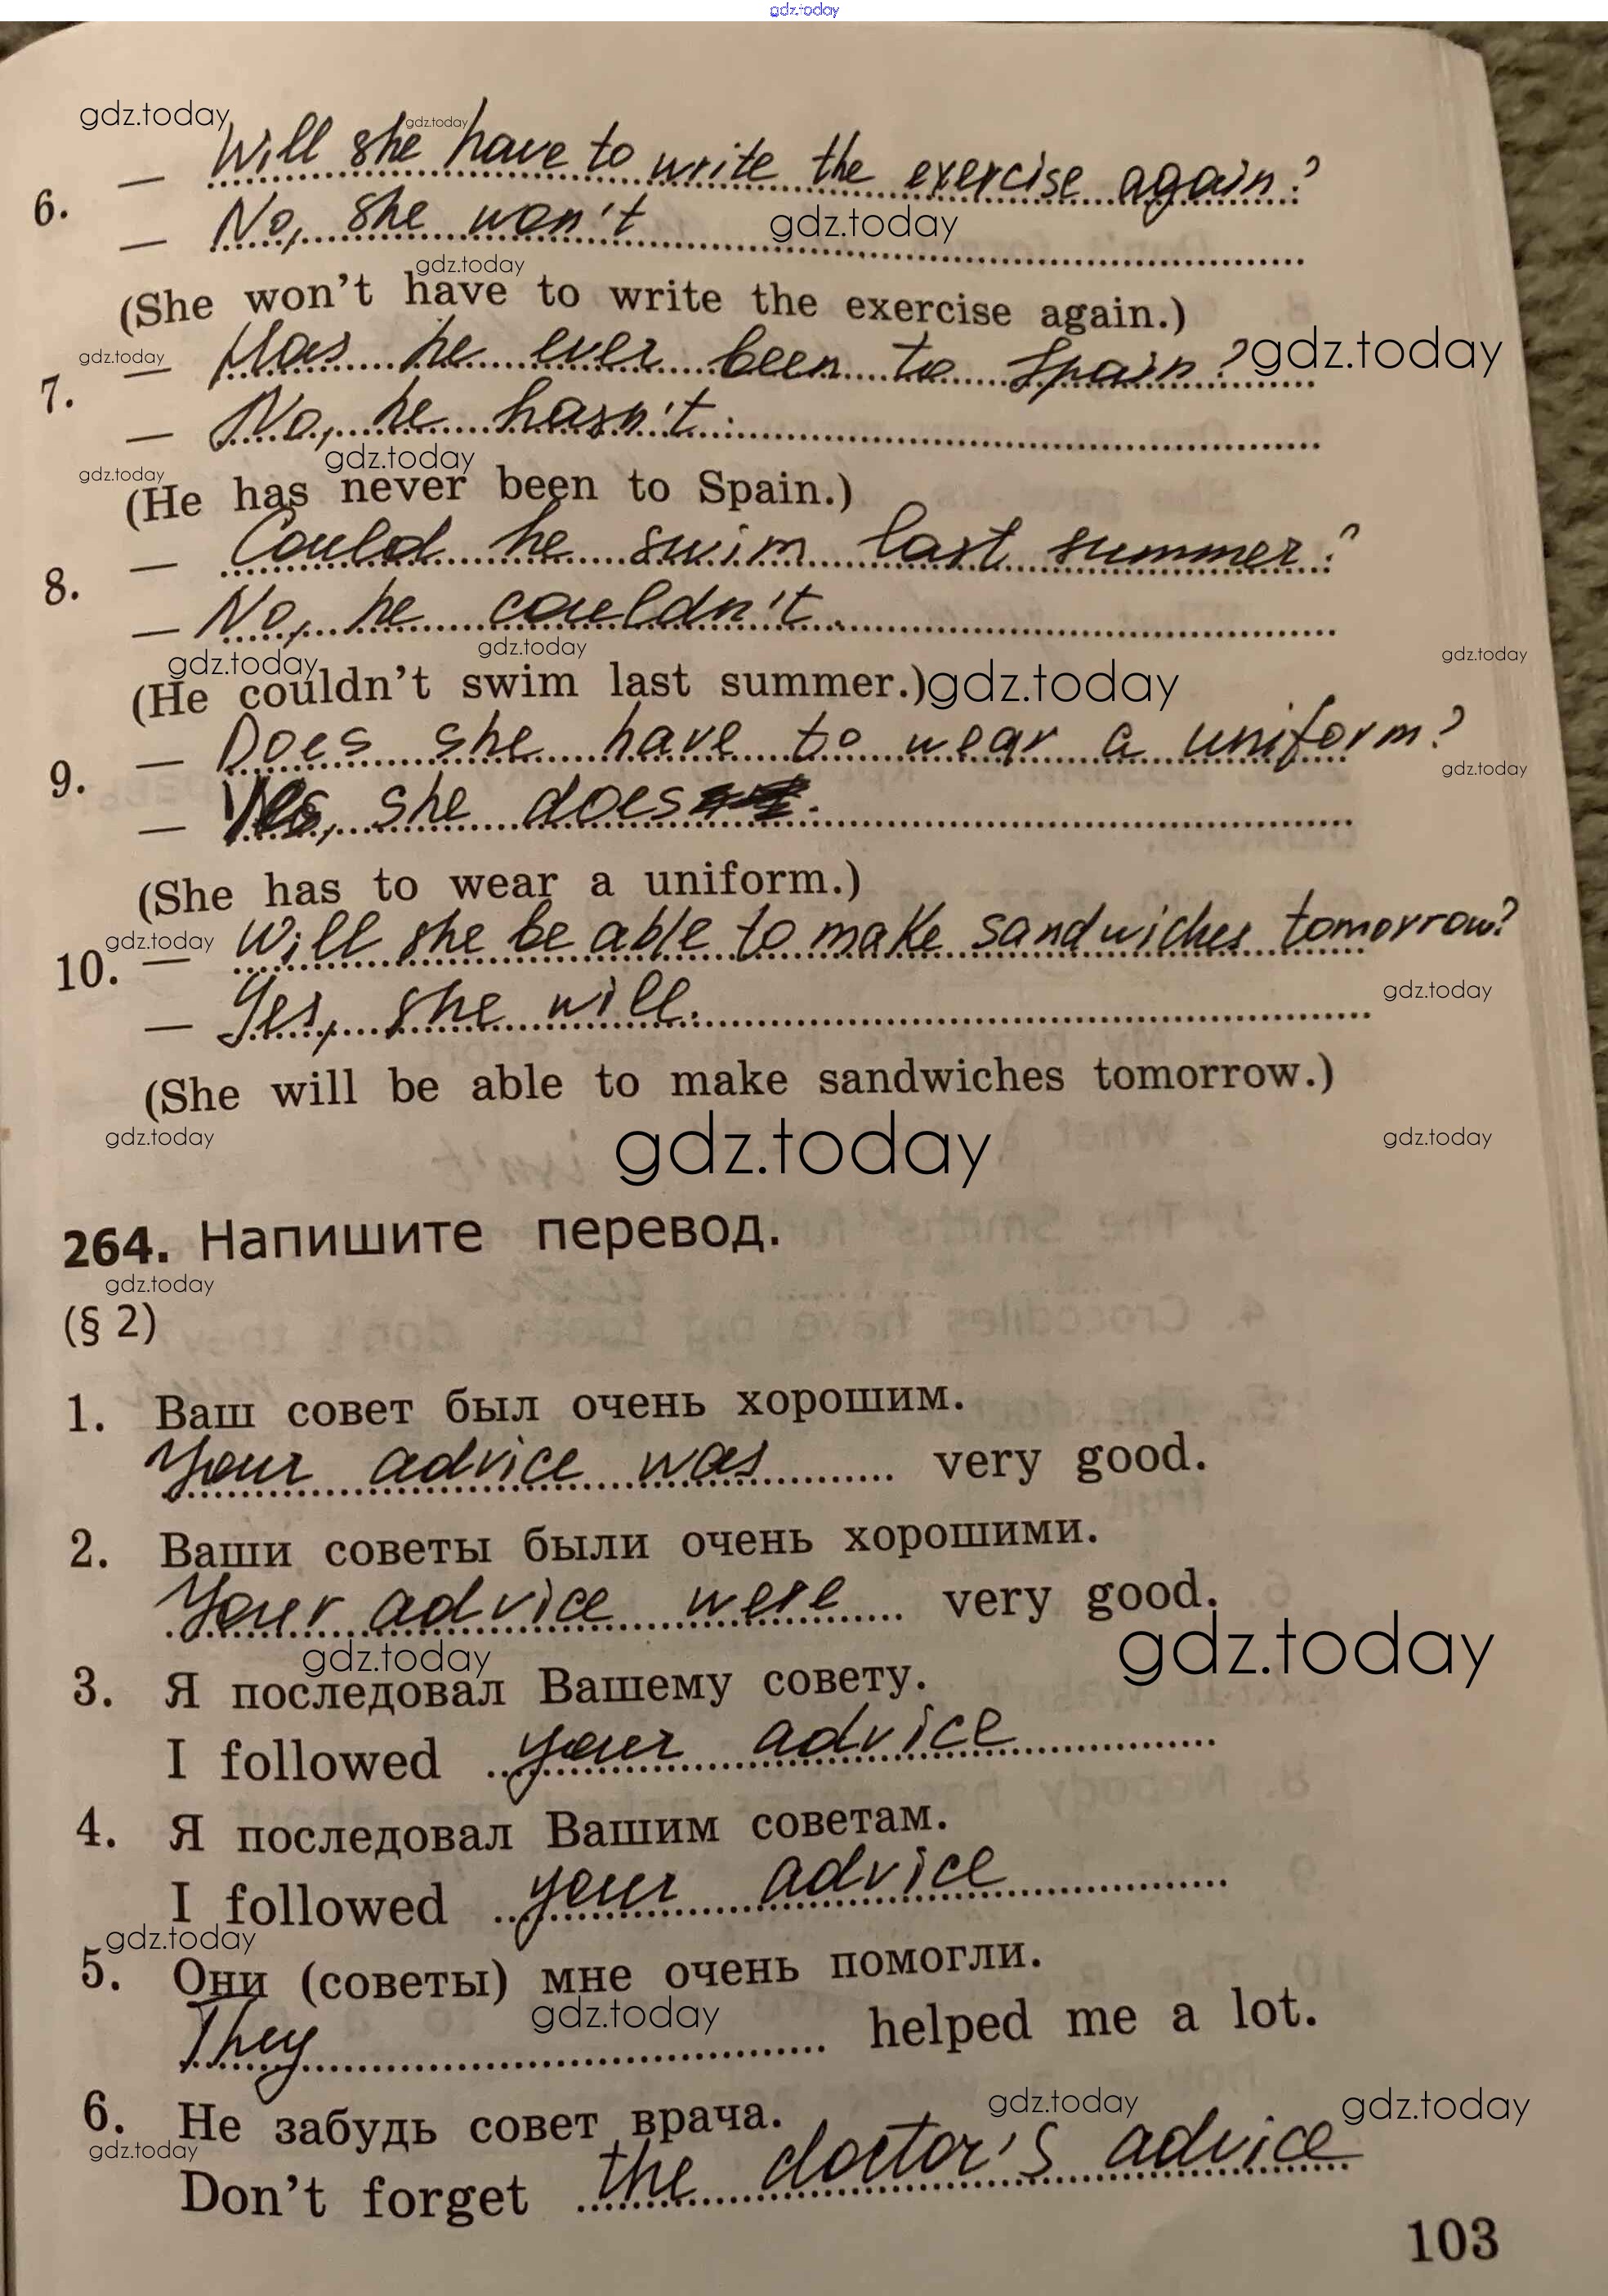 gdz.today
gdz.today gdz.today
6. — Will she have to write the exercise again?
— No, she won't
gdz.today
gdz.today
(She won't have to write the exercise again.)
gdz.today
7. — Has he ever been to Spain?
gdz.today
— No, he hasn't.
gdz.today
gdz.today
(He has never been to Spain.)
8. — Could he swim last summer?
— No, he couldn't.
gdz.today
gdz.today
gdz.today
(He couldn't swim last summer.)
gdz.today
9. — Does she have to wear a uniform?
gdz.today
— Yes, she does.
(She has to wear a uniform.)
gdz.today
10. — Will she be able to make sandwiches tomorrow?
gdz.today
— Yes, she will.
(She will be able to make sandwiches tomorrow.)
gdz.today
gdz.today
gdz.today
264. Напишите перевод.
gdz.today
(§ 2)
1. Ваш совет был очень хорошим.
Your advice was very good.
2. Ваши советы были очень хорошими.
Your advice were very good.
gdz.today
gdz.today
3. Я последовал Вашему совету.
I followed your advice
4. Я последовал Вашим советам.
I followed your advice
gdz.today
5. Они (советы) мне очень помогли.
gdz.today
They helped me a lot.
gdz.today
gdz.today
6. Не забудь совет врача.
gdz.today
Don't forget the doctor's advice
103